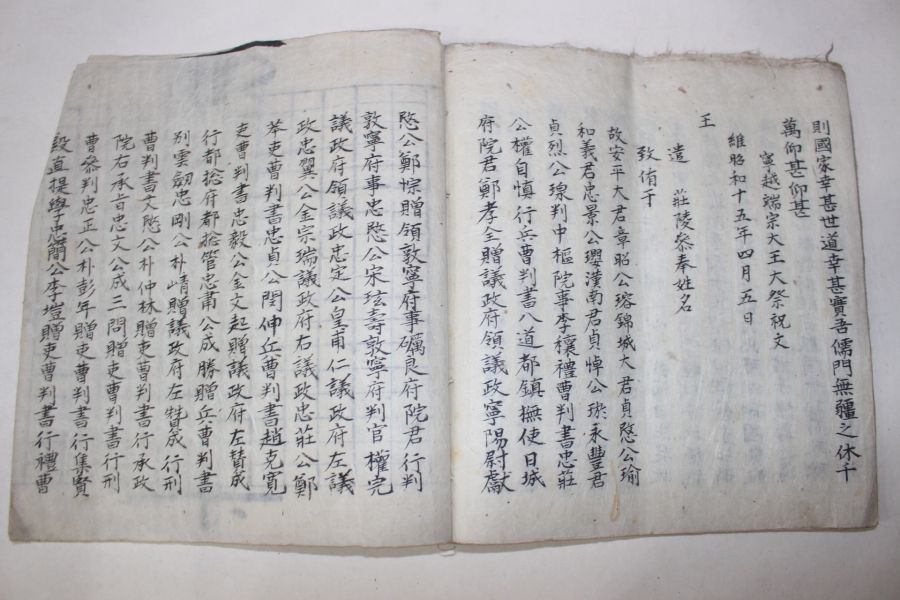 則國家幸甚世道幸甚實吾儒門無疆之休千
萬仰甚仰甚
寧越端宗大王大祭祝文
維昭和十五年四月五日
王
遣　莊陵叅奉姓名
致侑于
故安平大君章昭公瑢錦城大君貞愍公瑜
和義君忠景公瓔漢南君貞悼公𤥽永豐君
貞烈公瑔判中樞院事李穰禮曹判書忠莊
公權自愼行兵曹判書八道都鎭撫使日城
府院君鄭孝全贈議政府領議政寧陽尉獻
愍公鄭悰贈領敦寧府事礪良府院君行判
敦寧府事忠愍公宋玹壽敦寧府判官權完
議政府領議政忠定公皇甫仁議政府左議
政忠翼公金宗瑞議政府右議政忠莊公鄭
苯吏曹判書忠貞公閔伸兵曹判書趙克寬
吏曹判書忠毅公金文起贈議政府左賛成
行都捴府都捴管忠肅公成勝贈兵曹判書
別雲劔忠剛公朴崝贈議政府左賛成行刑
曹判書文愍公朴仲林贈吏曹判書行承政
院右承旨忠文公成三問贈吏曹判書行刑
曹叅判忠正公朴彭年贈吏曹判書行集賢
殿直提學忠簡公李塏贈吏曹判書行禮曹